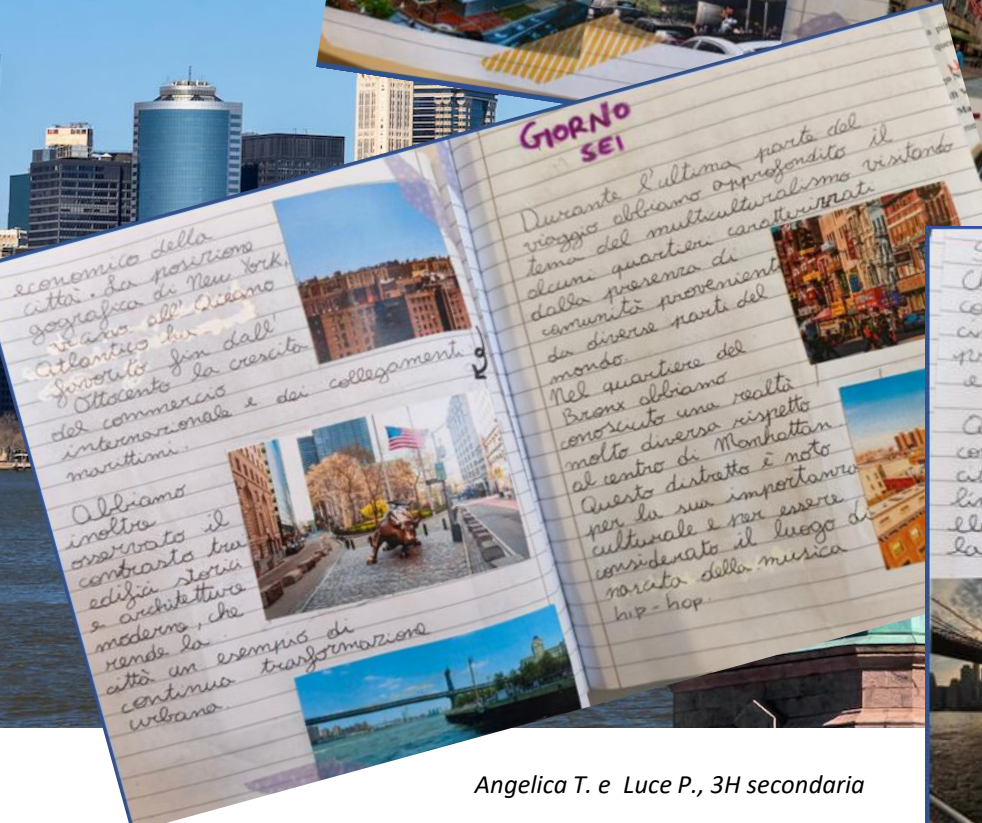 economico della
città. La posizione
gografica di New York,
vicino all'Oceano
Atlantico ha
favorito fin dall'
Ottocento la crescita
del commercio
internazionale e dei collegamenti
marittimi.
Abbiamo
inoltre
osservato il
contrasto tra
edifici storici
e architetture
moderne, che
rende la
città un esempio di
continua trasformazione
urbana.
GIORNO
SEI
Durante l'ultima parte del
viaggio abbiamo approfondito il
tema del multiculturalismo visitando
alcuni quartieri caratterizzati
dalla presenza di
comunità provenienti
da diverse parti del
mondo.
Nel quartiere del
Bronx abbiamo
conosciuto una realtà
molto diversa rispetto
al centro di Manhattan
Questo distretto è noto
per la sua importanza
culturale e per essere
considerato il luogo di
nascita della musica
hip-hop.
Angelica T. e Luce P., 3H secondaria